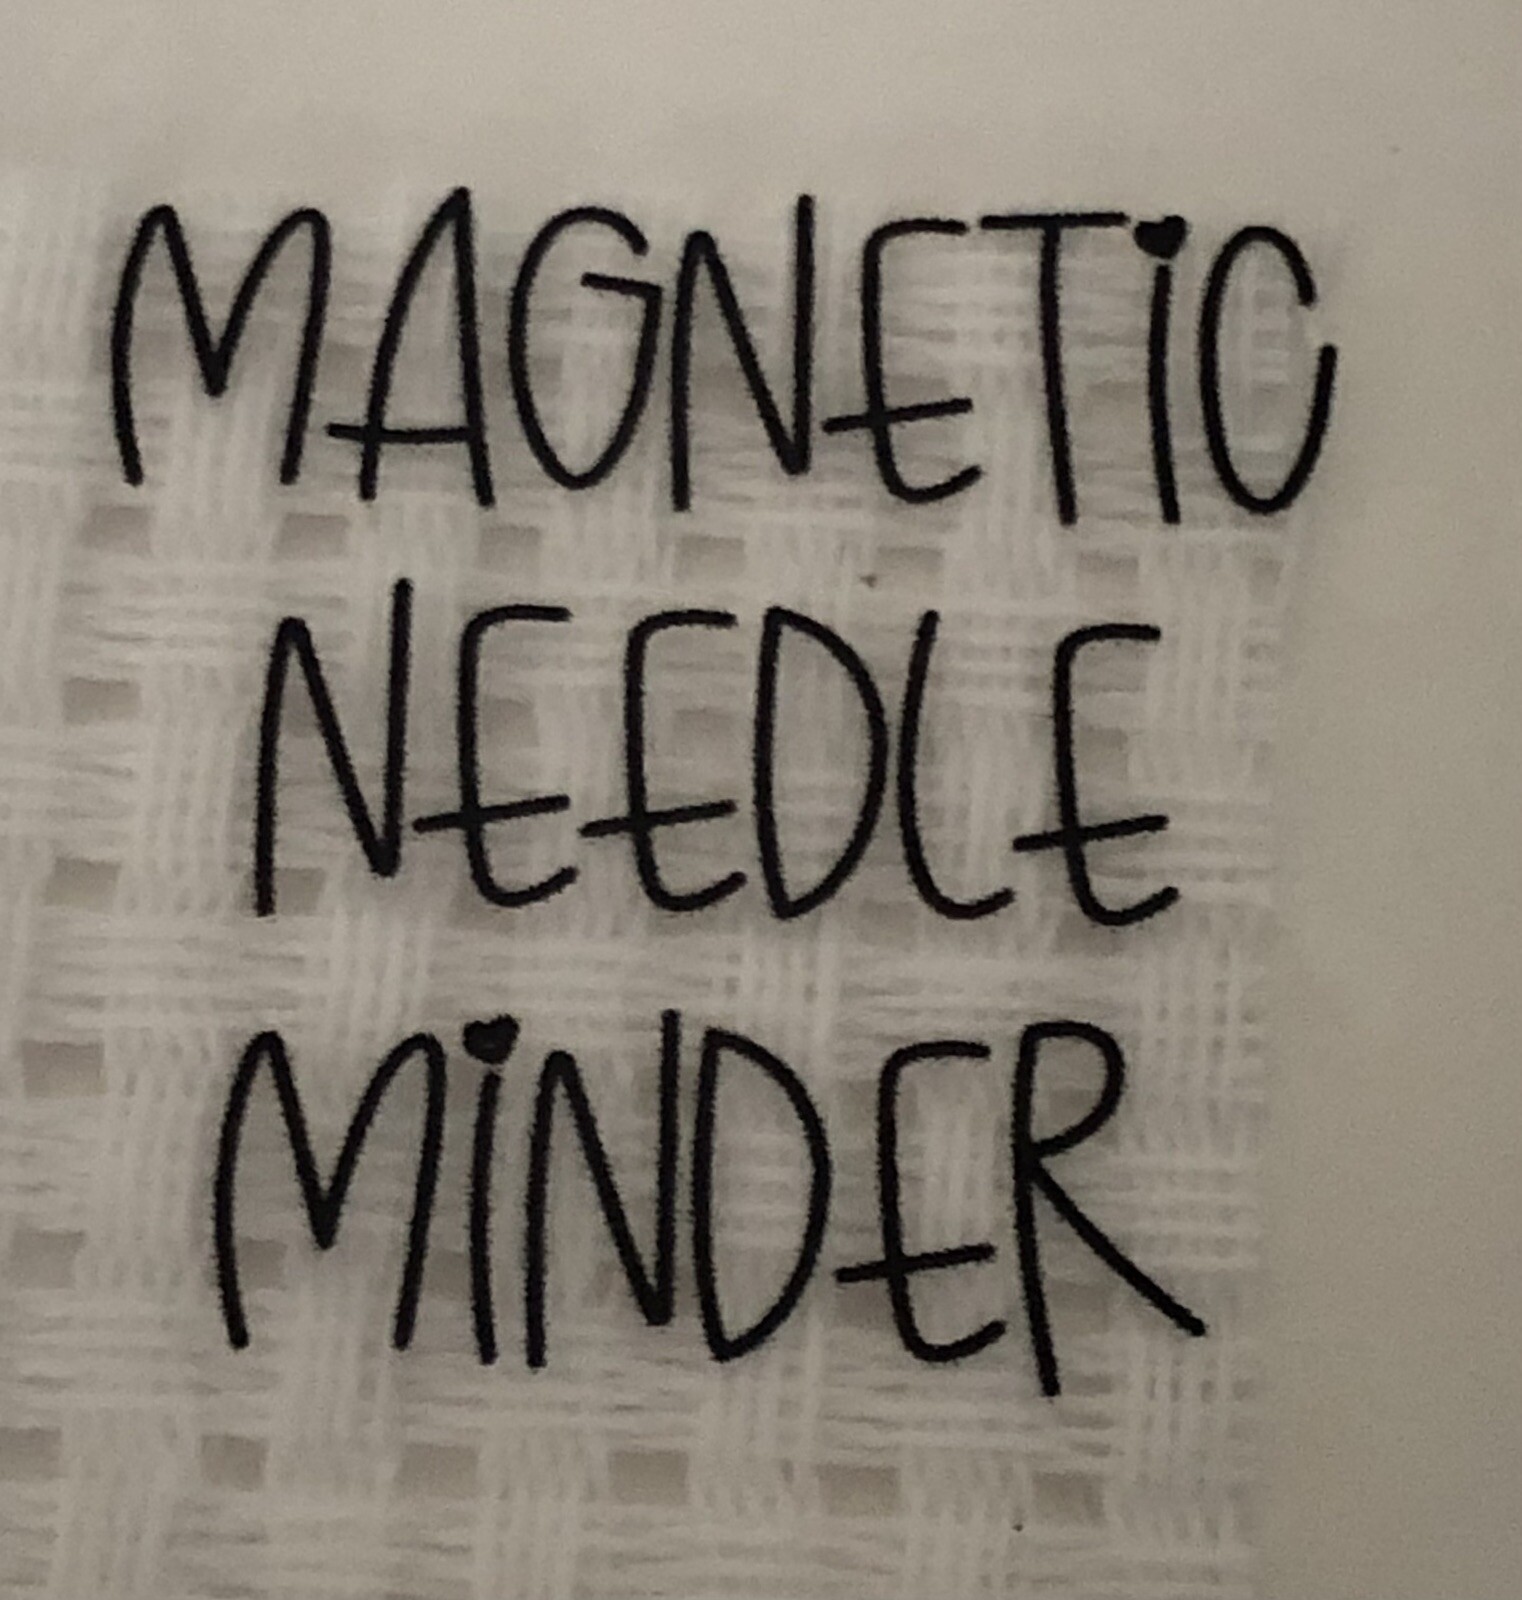 MAGNETiC
NEEDLE
MiNDER